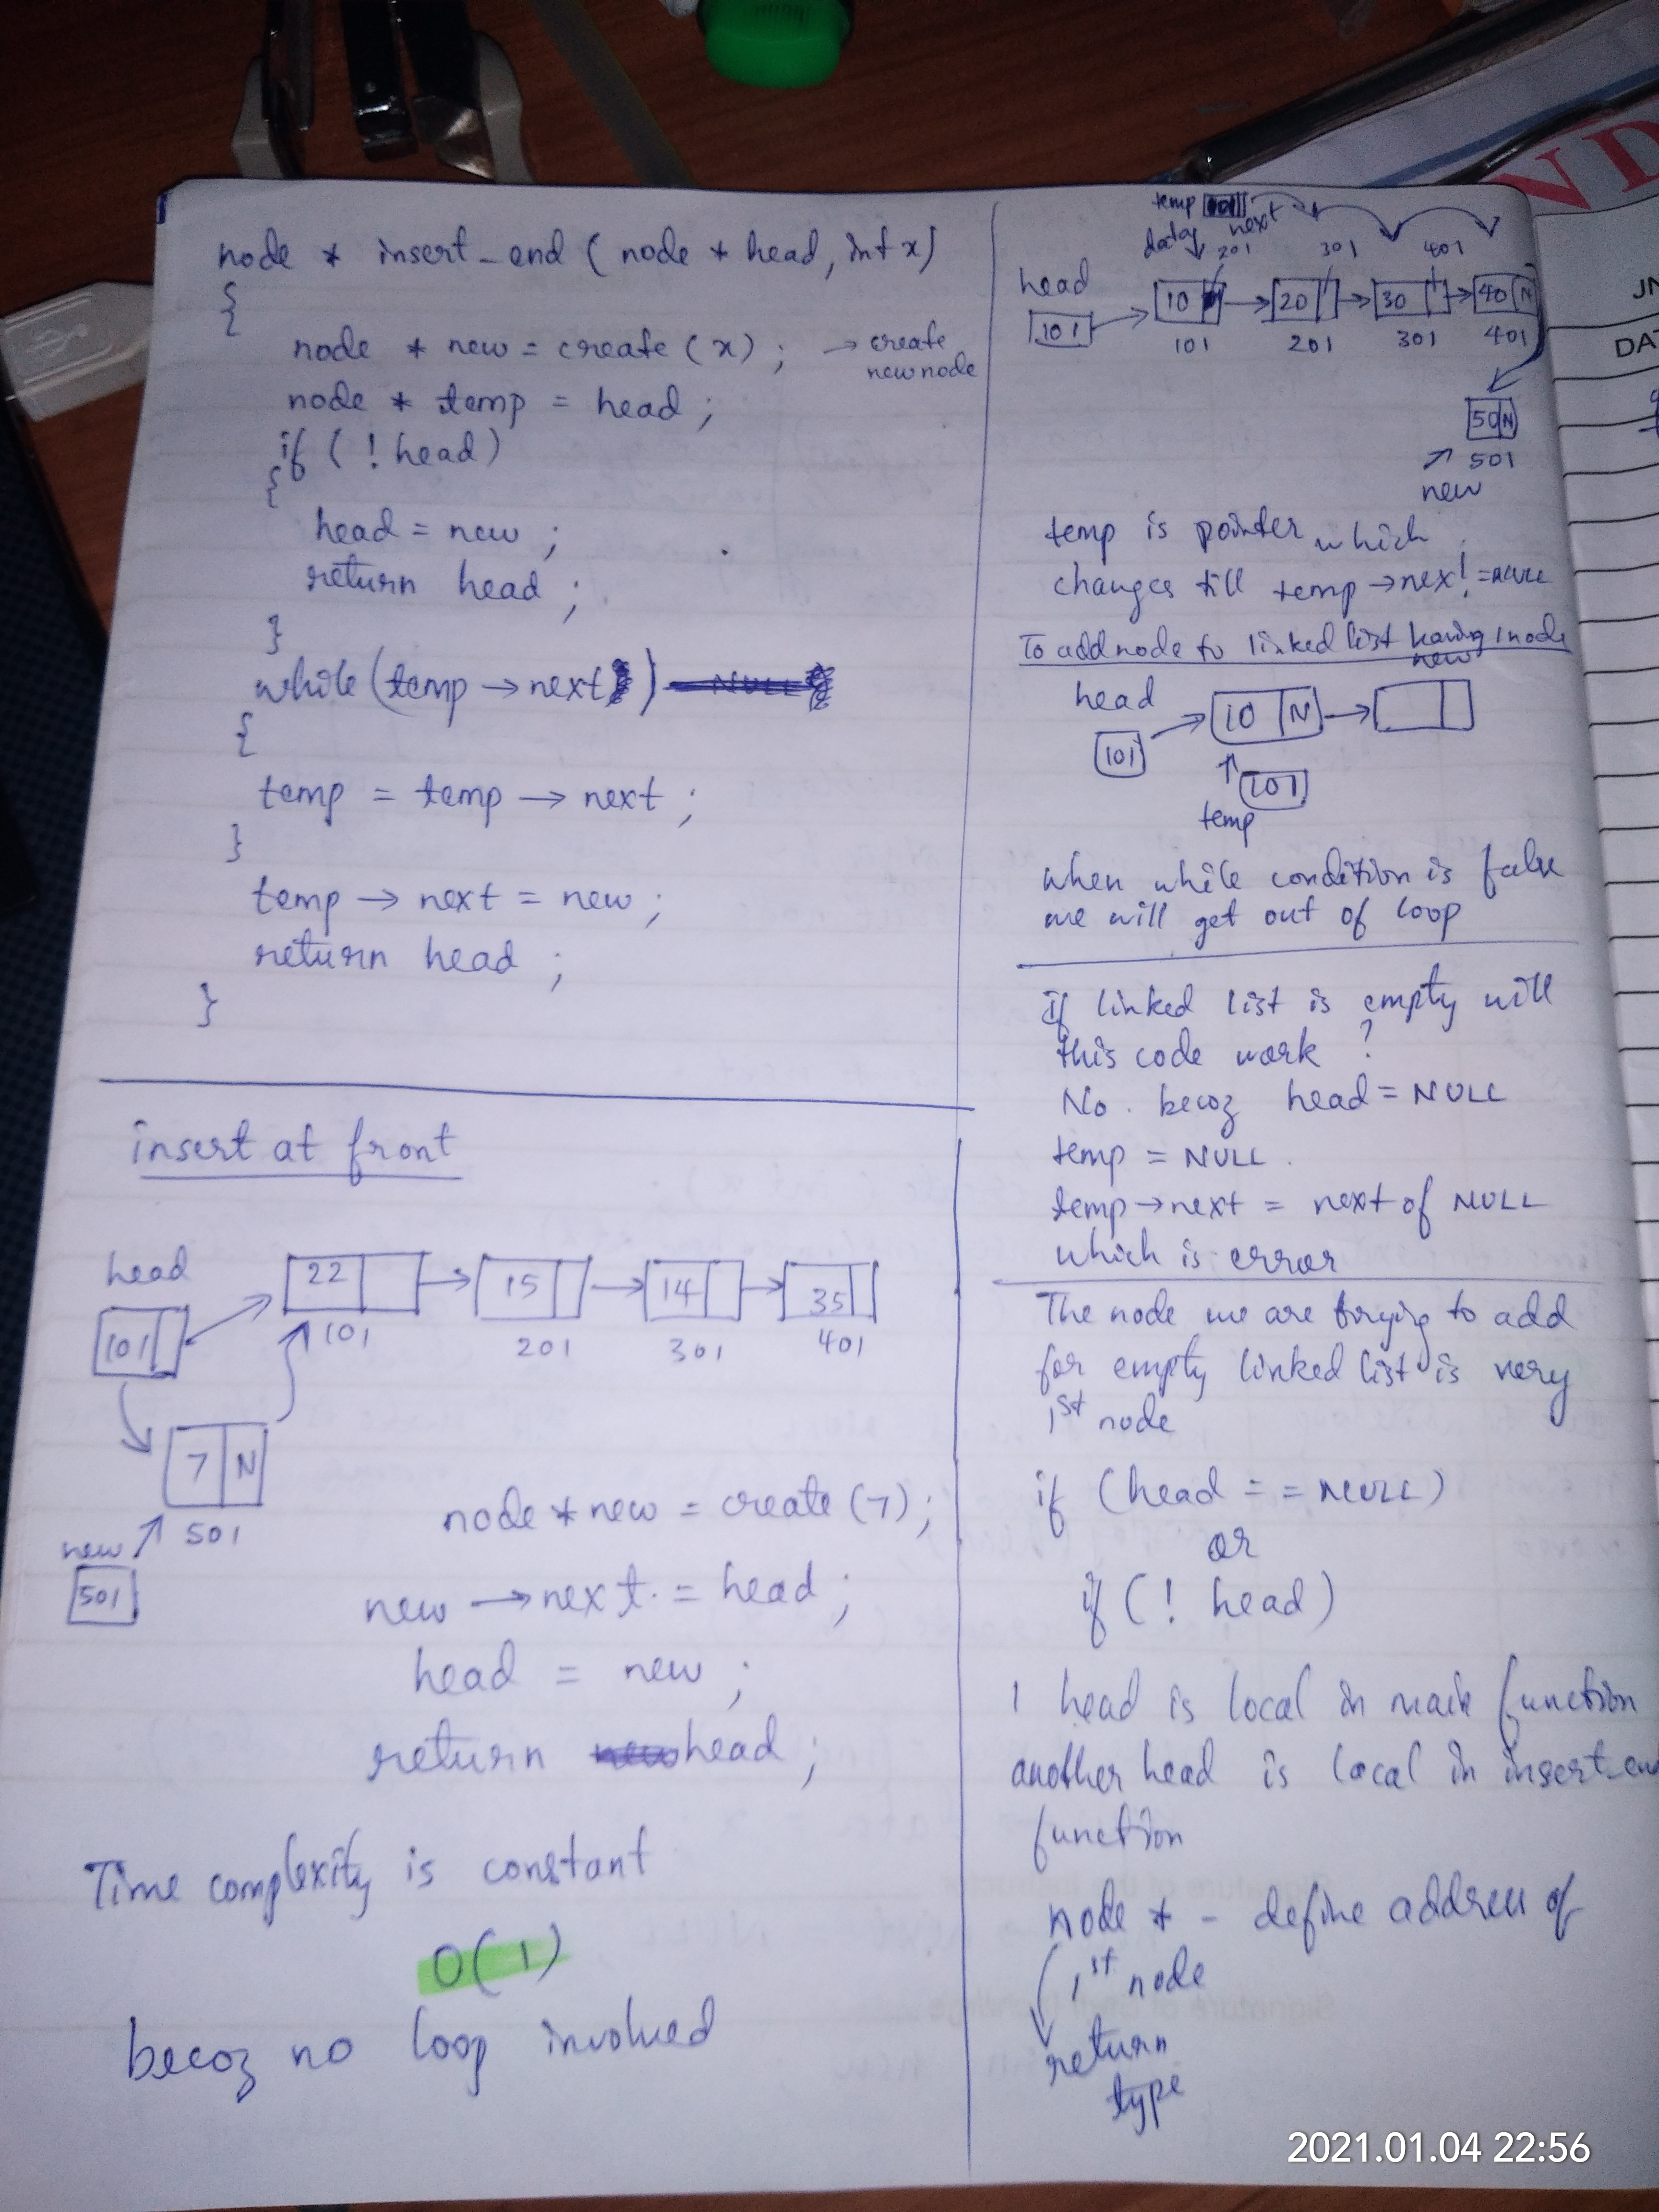 node * insert_end ( node * head, int x)
{
node * new = create ( x ) ; → create
new node
node * temp = head ;
if ( ! head )
{
head = new ;
return head ;
}
while (temp → next )
{
temp = temp → next ;
}
temp → next = new ;
return head ;
}
insert at front
head
101
22
15
14
35
101
201
301
401
7 N
501
new
501
node * new = create (7) ;
new → next = head ;
head = new ;
return head ;
Time complexity is constant
O(1)
becoz no loop involved
temp
data next
201 301 401
head
101
10 20 30 40 N
101 201 301 401
50 N
501
new
temp is pointer which
changes till temp → nex! = NULL
To add node to linked list having 1 node
new
head
10 N
101
101
temp
when while condition is false
we will get out of loop
if linked list is empty will
this code work ?
No . becoz head = NULL
temp = NULL .
temp → next = next of NULL
which is error
The node we are trying to add
for empty linked list is very
1st node
if (head = = NULL)
or
if ( ! head )
1 head is local in main function
another head is local in insert_en
function
node * - define address of
1st node
return
type
VD
JN
DA
2021.01.04 22:56